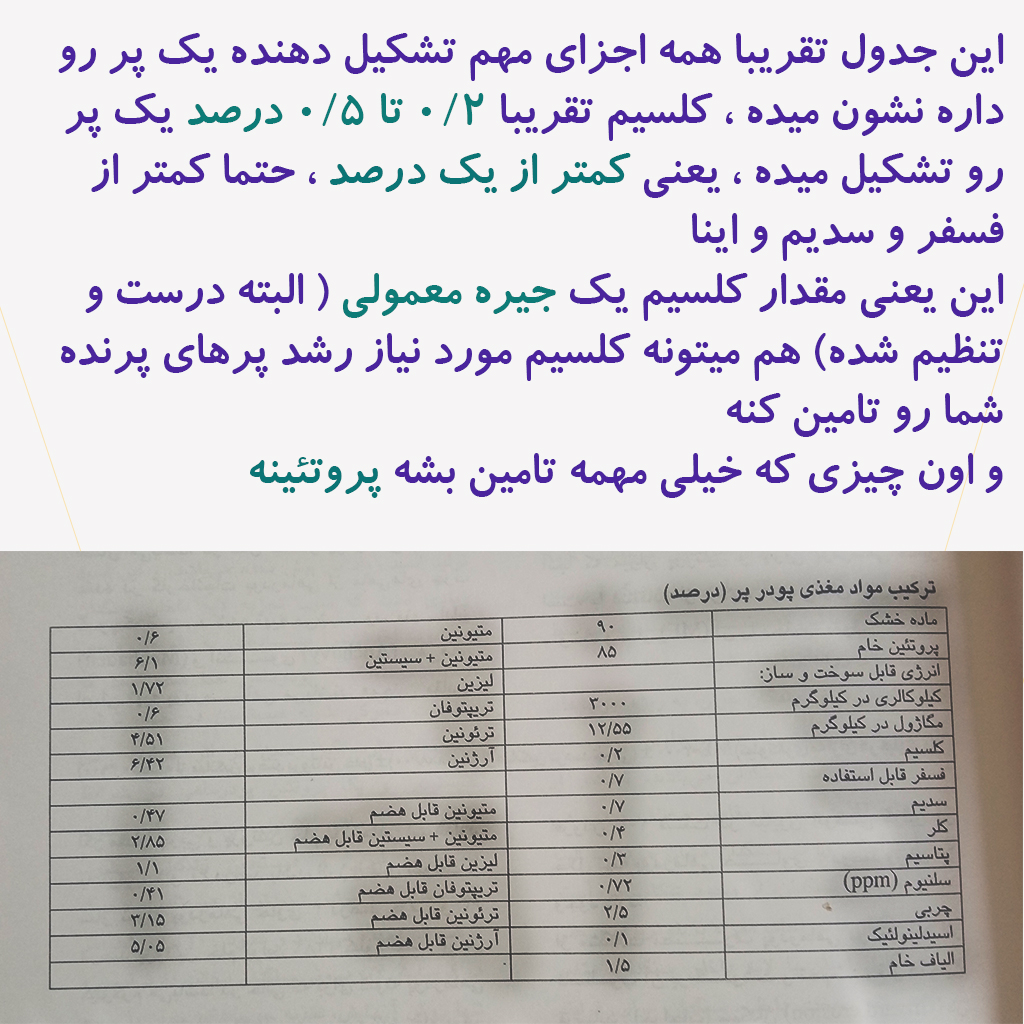 این جدول تقریبا همه اجزای مهم تشکیل دهنده یک پر رو
داره نشون میده ، کلسیم تقریبا ۰/۲ تا ۰/۵ درصد یک پر
رو تشکیل میده ، یعنی کمتر از یک درصد ، حتما کمتر از
فسفر و سدیم و اینا
این یعنی مقدار کلسیم یک جیره معمولی ( البته درست و
تنظیم شده) هم میتونه کلسیم مورد نیاز رشد پرهای پرنده
شما رو تامین کنه
و اون چیزی که خیلی مهمه تامین بشه پروتئینه
ترکیب مواد مغذی پودر پر (درصد)
ماده خشک ۹۰ متیونین ۰/۶
پروتئین خام ۸۵ متیونین + سیستین ۶/۱
انرژی قابل سوخت و ساز: لیزین ۱/۷۲
کیلوکالری در کیلوگرم ۳۰۰۰ تریپتوفان ۰/۶
مگاژول در کیلوگرم ۱۲/۵۵ ترئونین ۴/۵۱
کلسیم ۰/۲ آرژنین ۶/۴۲
فسفر قابل استفاده ۰/۷
سدیم ۰/۷ متیونین قابل هضم ۰/۴۷
کلر ۰/۴ متیونین + سیستین قابل هضم ۲/۸۵
پتاسیم ۰/۳ لیزین قابل هضم ۱/۱
سلنیوم (ppm) ۰/۷۲ تریپتوفان قابل هضم ۰/۴۱
چربی ۲/۵ ترئونین قابل هضم ۳/۱۵
اسیدلینولئیک ۰/۱ آرژنین قابل هضم ۵/۰۵
الیاف خام ۱/۵